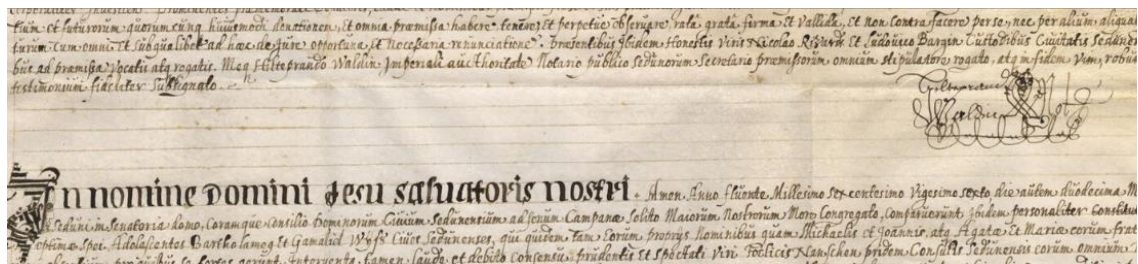 tium et futurorum quorum cunq huiusmodi donationem, et omnia præmissa habere, tenere, et perpetuè observare, rata, grata, firma et vallida, et non contra facere per se, nec per alium aliqua
turum cum omni et subqualibet ad hæc de jure opportuna, et necessaria renunciatione. Præsentibus ibidem Honestis Viris Nicolao Riward et Ludovico Bargin Custodibus Civitatis Sedunen
bus ad præmissa vocatis atq rogatis. Meq Hilteprando Waldin, Imperiali authoritate Notario publico Sedunorum Secretario præmissorum omnium stipulatore rogato, atq in fidem Vim, robur
testimonium fideliter subsignato.
In nomine Domini Jesu salvatoris nostri. Amen. Anno fluente Millesimo sex centesimo Vigesimo sexto die autem duodecima
Seduni in senatoria domo, Coramque Consilio Dominorum Civium Sedunensium ad sonum Campanæ solito Maiorum Nostrorum More Congregato, Comparuerunt ibidem personaliter Constitut
optimæ spei Adolescentes Bartholameq et Gamaliel Wyss Cives Sedunenses, qui quidem tam eorum propriis Nominibus quam Michaelis et Joannis, atq Agatæ et Mariæ eorum frat
Interventu tamen, laude, et debito consensu prudentis et spectati Viri Foelicis Nanschen pridem Consulis Sedunensis eorum omnium